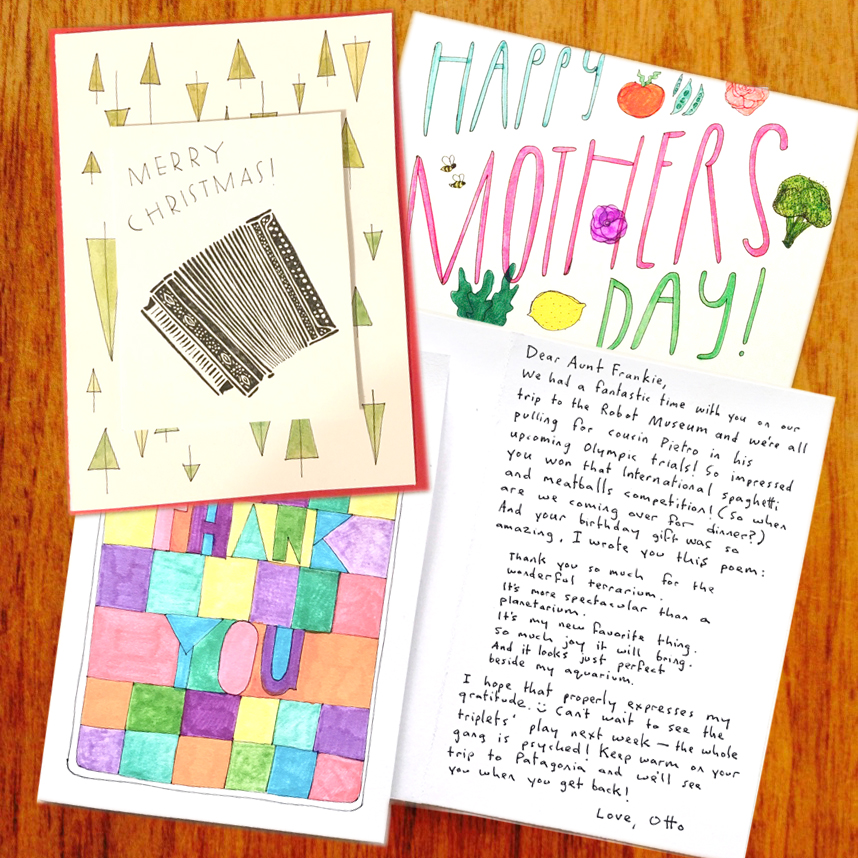 MERRY
CHRISTMAS!
HAPPY
MOTHERS
DAY!
THANK
YOU
Dear Aunt Frankie,
We had a fantastic time with you on our
trip to the Robot Museum and we're all
pulling for cousin Pietro in his
upcoming Olympic trials! So impressed
you won that International spaghetti
and meatballs competition! (So when
are we coming over for dinner?)
And your birthday gift was so
amazing, I wrote you this poem:
Thank you so much for the
wonderful terrarium.
It's more spectacular than a
planetarium.
It's my new favorite thing.
So much joy it will bring.
And it looks just perfect
beside my aquarium.
I hope that properly expresses my
gratitude. Ü Can't wait to see the
triplets' play next week — the whole
gang is psyched! Keep warm on your
trip to Patagonia and we'll see
you when you get back!
Love, Otto